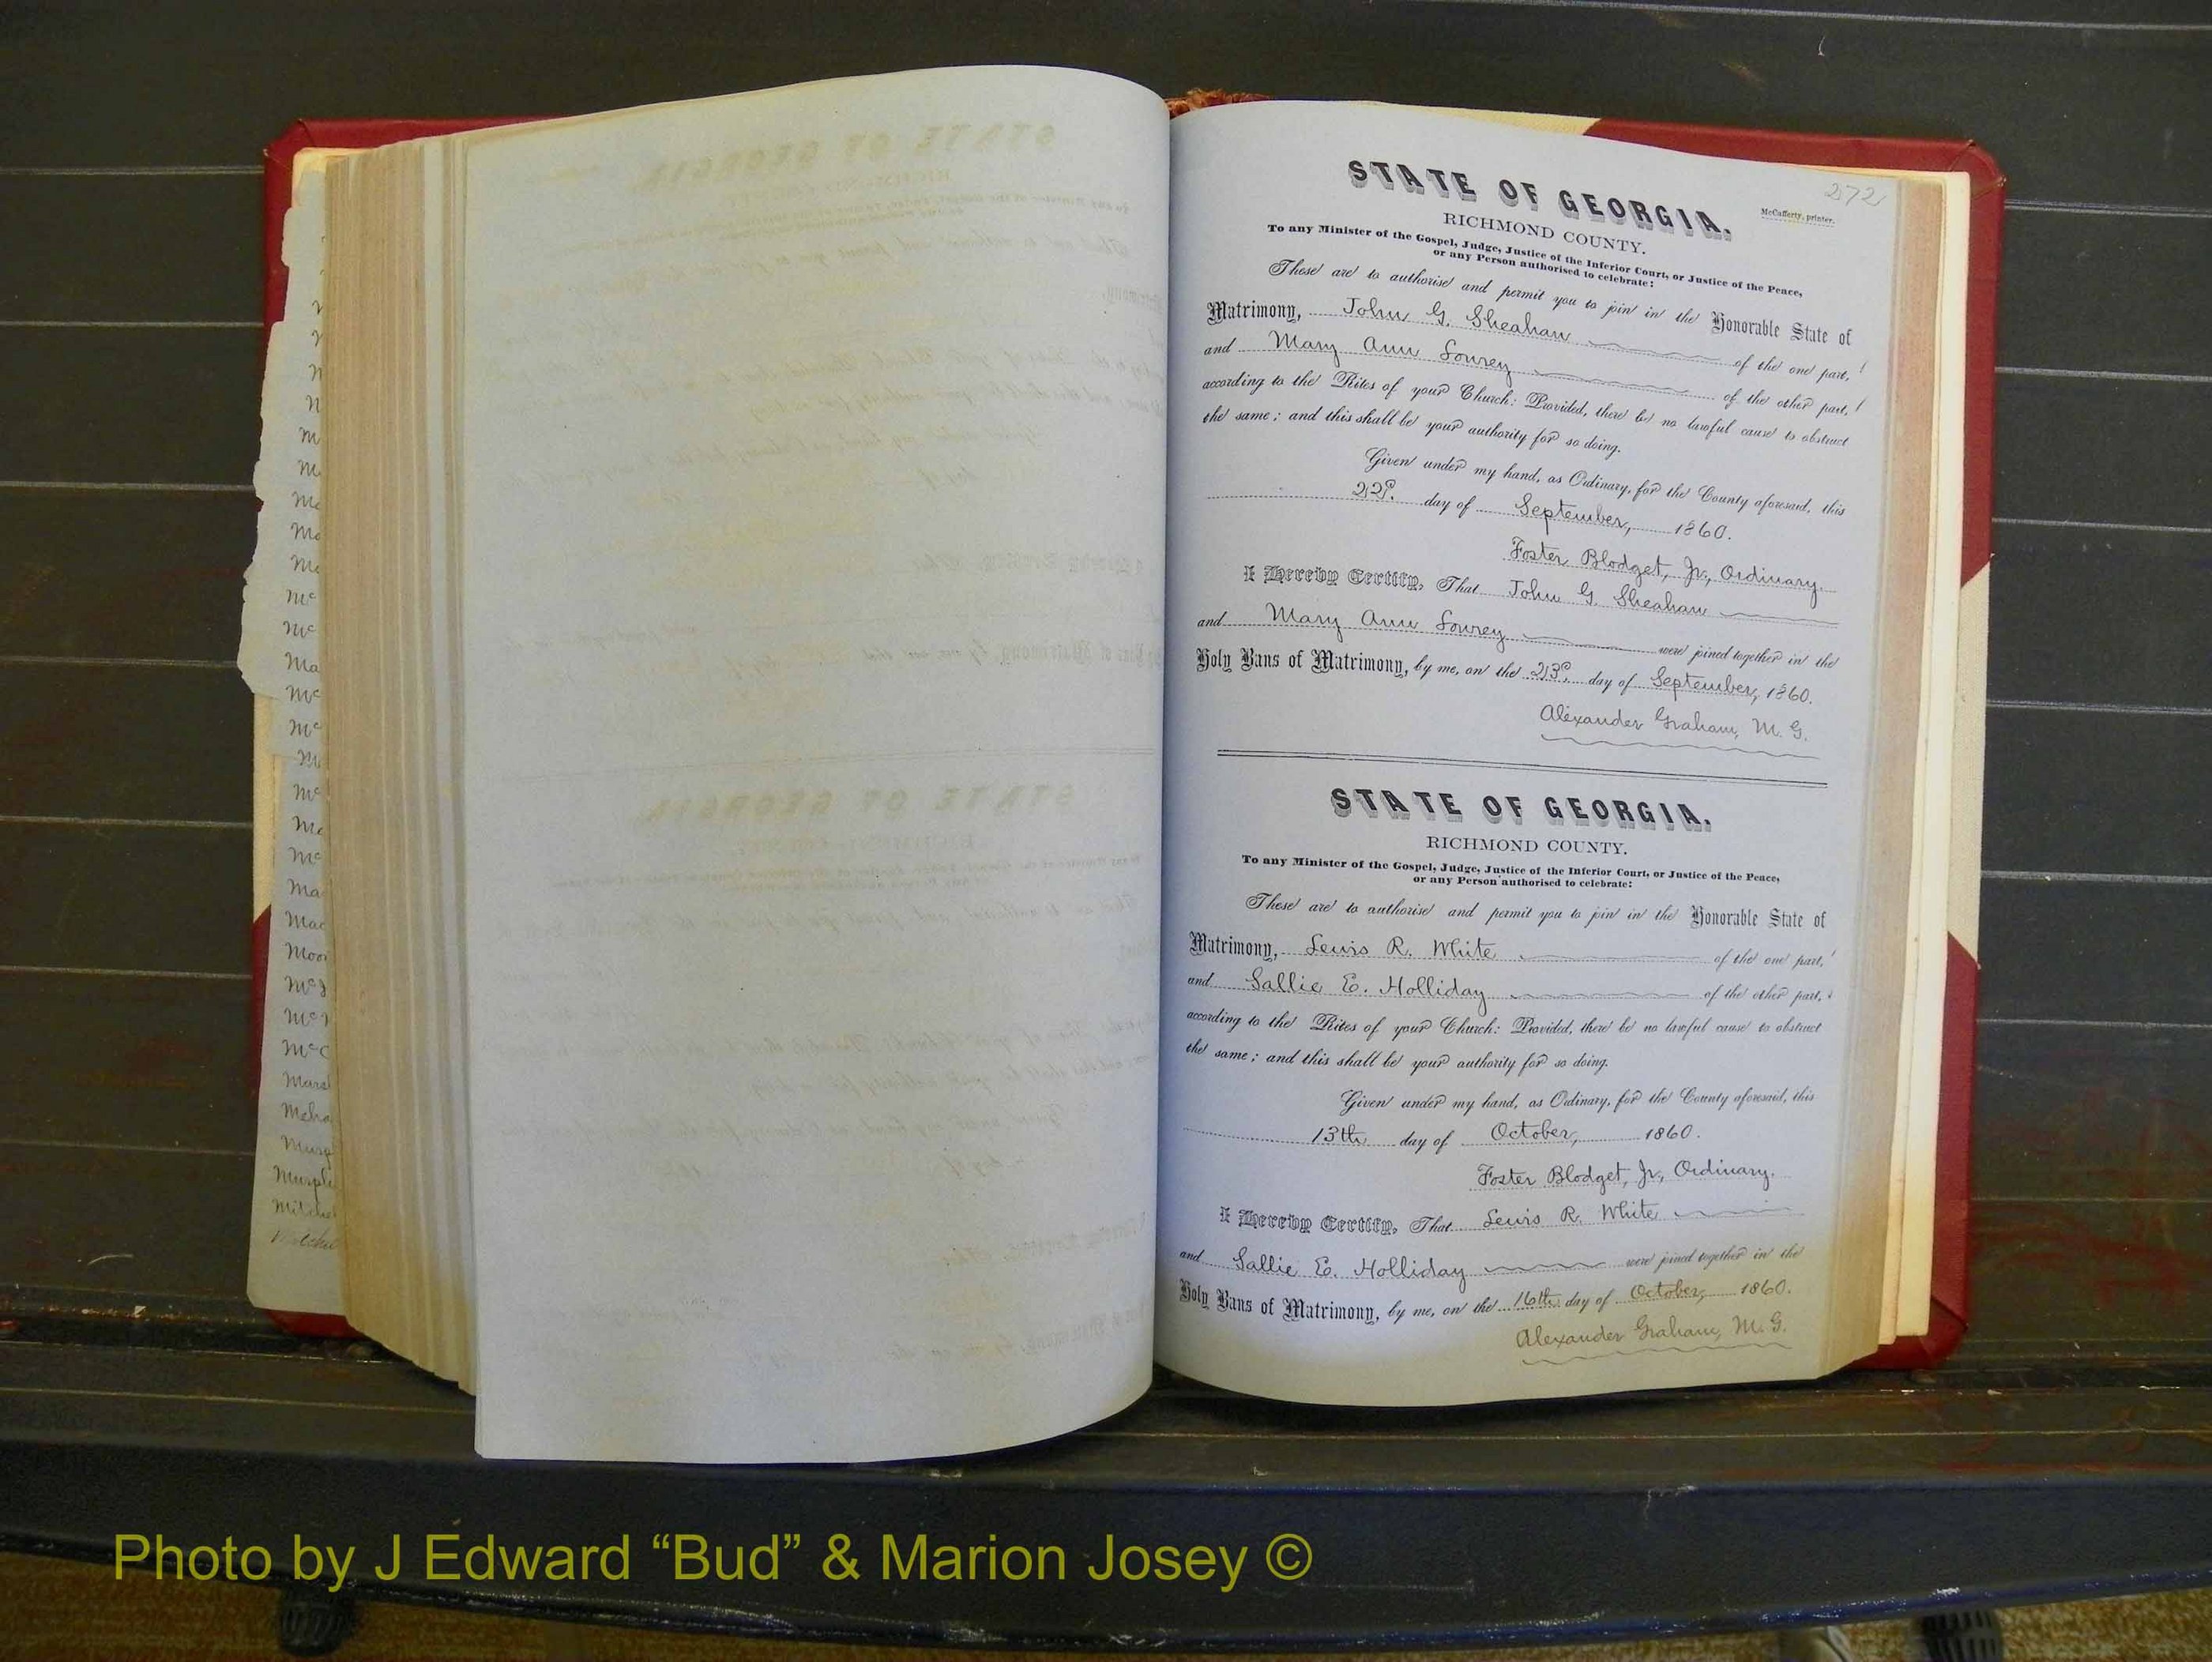 272
STATE OF GEORGIA.
McCafferty, printer.
RICHMOND COUNTY.
To any Minister of the Gospel, Judge, Justice of the Inferior Court, or Justice of the Peace,
or any Person authorised to celebrate:
These are to authorise and permit you to join in the Honorable State of
Matrimony, John G. Sheahan of the one part,
and Mary Ann Lowrey of the other part,
according to the Rites of your Church: Provided, there be no lawful cause to obstruct
the same; and this shall be your authority for so doing.
Given under my hand, as Ordinary, for the County aforesaid, this
22d. day of September, 1860.
Foster Blodget, Jr., Ordinary.
I Hereby Certify, That John G. Sheahan
and Mary Ann Lowrey were joined together in the
Holy Bans of Matrimony, by me, on the 23d. day of September, 1860.
Alexander Graham, M. G.
STATE OF GEORGIA.
RICHMOND COUNTY.
To any Minister of the Gospel, Judge, Justice of the Inferior Court, or Justice of the Peace,
or any Person authorised to celebrate:
These are to authorise and permit you to join in the Honorable State of
Matrimony, Lewis R. White of the one part,
and Sallie E. Holliday of the other part,
according to the Rites of your Church: Provided, there be no lawful cause to obstruct
the same; and this shall be your authority for so doing.
Given under my hand, as Ordinary, for the County aforesaid, this
13th day of October, 1860.
Foster Blodget, Jr., Ordinary.
I Hereby Certify, That Lewis R. White
and Sallie E. Holliday were joined together in the
Holy Bans of Matrimony, by me, on the 16th day of October, 1860.
Alexander Graham, M. G.
Photo by J Edward “Bud” & Marion Josey ©